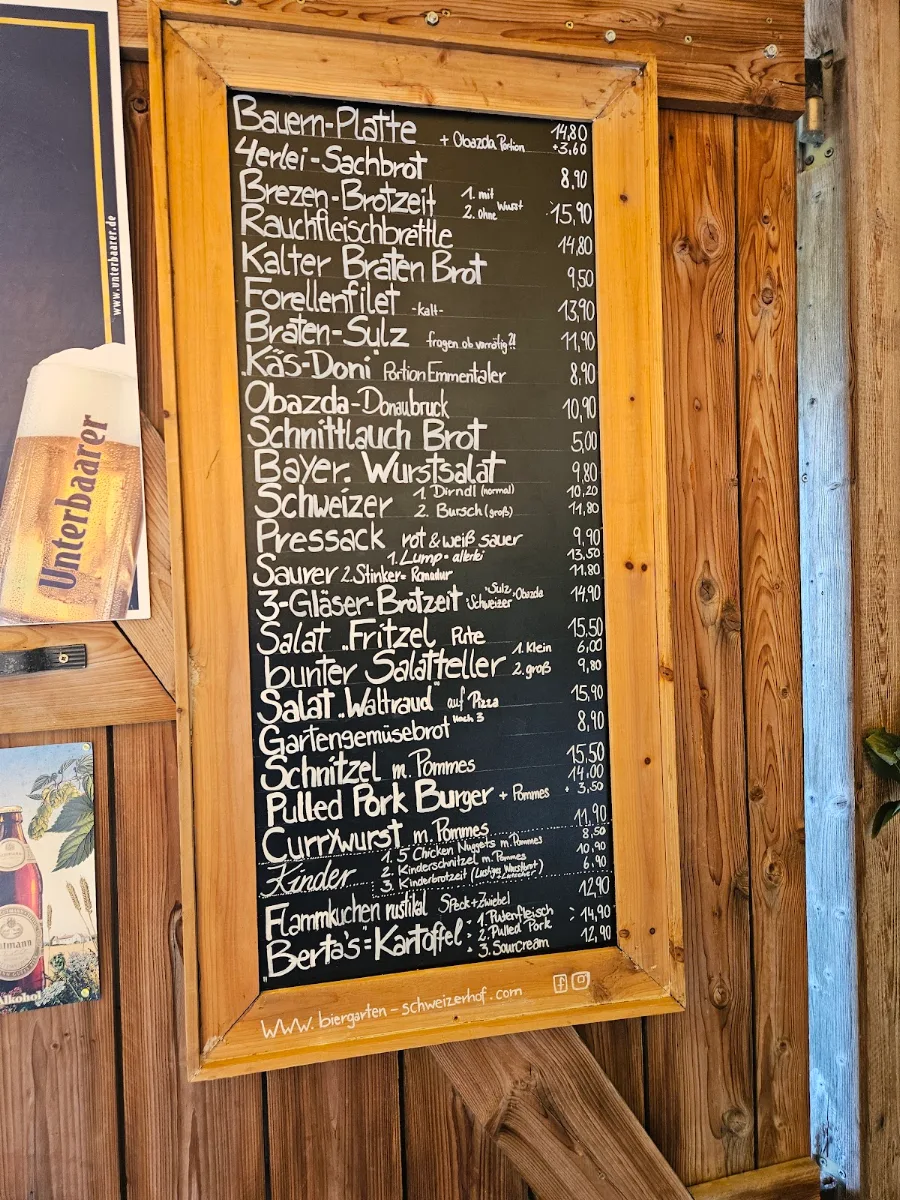 Bauern-Platte + Obazda Portion 14,80 +3,60
4erlei-Sachbrot 8,90
Brezen-Brotzeit 1. mit 2. ohne Wurst 15,90
Rauchfleischbrettle 14,80
Kalter Braten Brot 9,50
Forellenfilet -kalt- 13,90
Braten-Sulz fragen ob vorrätig?! 11,90
"Käs-Doni" Portion Emmentaler 8,90
Obazda-Donaubruck 10,90
Schnittlauch Brot 5,00
Bayer. Wurstsalat 9,80
Schweizer 1. Dirndl (normal) 10,20
2. Bursch (groß) 11,80
Pressack rot & weiß sauer 9,90
1. Lump = allerlei 13,50
Saurer 2. Stinker = Romadur 11,80
3-Gläser-Brotzeit "Sulz, Obazda Schweizer 14,90
Salat "Fritzel Pute 15,50
bunter Salatteller 1. Klein 6,00
2. groß 9,80
Salat "Waltraud" auf Pizza 15,90
Gartengemüsebrot 8,90
Schnitzel m. Pommes 15,50
Pulled Pork Burger + Pommes 14,00 + 3,50
Currywurst m. Pommes 11,90
Kinder 1. 5 Chicken Nuggets m. Pommes 8,50
2. Kinderschnitzel m. Pommes 10,90
3. Kinderbrotzeit (Lustiges Wurstbrot) 6,90
Flammkuchen rustikal Speck+Zwiebel 12,90
"Berta's" = Kartoffel: 1. Putenfleisch
2. Pulled Pork > 14,90
3. Sourcream 12,90
www.biergarten-schweizerhof.com
www.unterbaarer.de
Unterbaarer
Alkohol